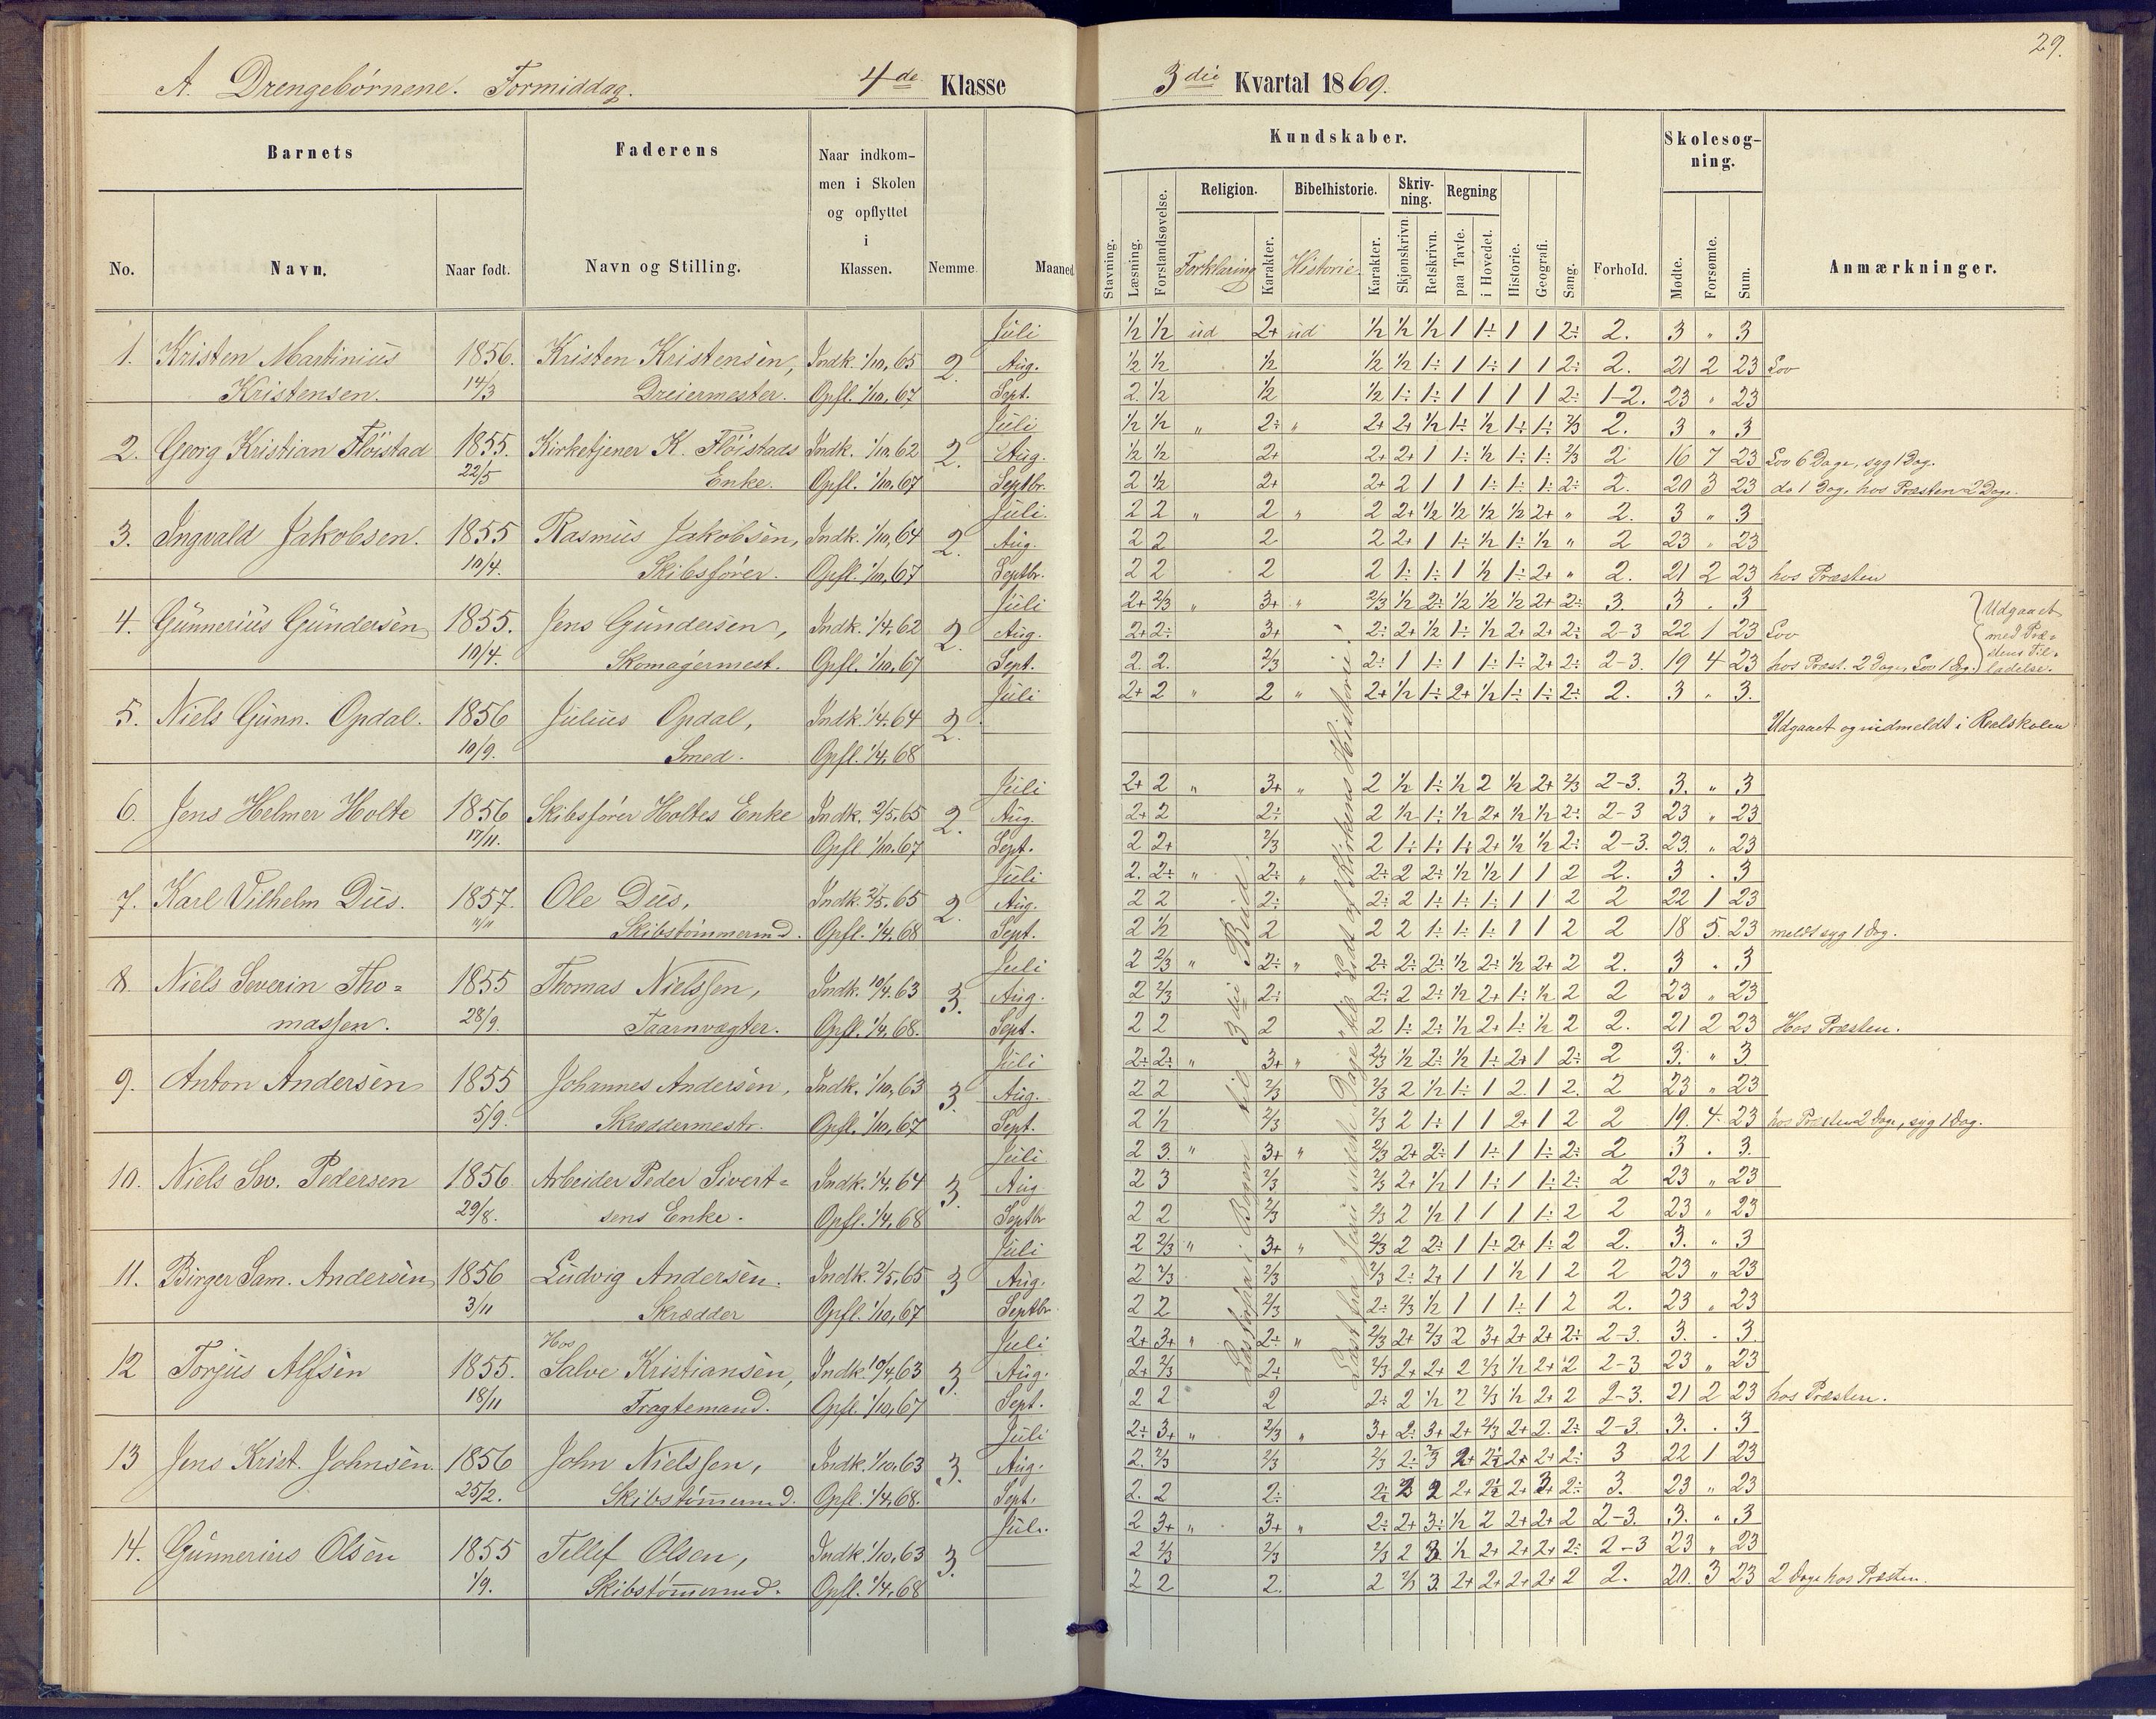 29.
A. Drengebørnene. Formiddag. 4de Klasse
3die Kvartal 1869.
Barnets
Faderens
Naar indkom-
men i Skolen
og opflyttet
i
Klassen.
No.
Navn.
Naar født.
Navn og Stilling.
Nemme.
Maaned
Kundskaber.
Skolesøg-
ning.
Religion.
Bibelhistorie.
Skriv-
ning.
Regning
Stavning.
Læsning.
Forstandsøvelse.
Forklaring
Karakter.
Historie
Karakter.
Skjønskrivn.
Retskrivn.
paa Tavle.
i Hovedet.
Historie.
Geografi.
Sang.
Forhold.
Mødte.
Forsømte.
Sum.
Anmærkninger.
Juli ½ ½ ud 2+ ud ½ ½ ½ 1 1÷ 1 1 2÷ 2. 3 " 3
1. Kristen Martinius 1856. Kristen Kristensen, Indk. 1/10, 65 2. Aug. ½ ½ ½ ½ ½ 1÷ 1 1÷ 1 1 2÷ 2. 21 2 23 Lov
Kristensen. 14/3 Dreiermester. Opfl. 1/10, 67 Sept. 2. ½ ½ ½ 1÷ 1÷ 1 1 1 1 2÷ 1-2. 23 " 23
Juli ½ ½ " 2÷ " 2+ 2+ ½ 1÷ ½ 1÷ 1÷ 2/3 2. 3 " 3
2. Georg Kristian Fløistad 1855. Kirketjener K. Fløistads Indk. 1/10, 62 2. Aug. ½ ½ 2+ 2+ 2+ 1 1÷ ½ 1÷ 1÷ 2/3 2 16 7 23 Lov 6 Dage, syg 1 Dag.
22/5 Enke. Opfl. 1/10, 67 Septbr. 2 ½ 2+ 2+ 2 1 1 1÷ 1÷ 1÷ 2÷ 2. 20 3 23 do 1 Dag, hos Præsten 2 Dage.
Juli. 2 2 " 2 " 2 2+ ½ ½ ½ ½ 2+ " 2. 3 " 3
3. Ingvald Jakobsen. 1855 Rasmus Jakobsen, Indk. 1/10, 64 2. Aug. 2 2 2 2 2+ 1 1÷ ½ 1÷ ½ " 2 23 " 23
10/4. Skibsfører. Opfl. 1/10, 67 Septbr. 2 2 2 2 1÷ 1÷ 1 ½ 1÷ 2+ " 2. 21 2 23 hos Præsten
Juli 2+ 2/3 " 3+ " 2/3 ½ 2÷ ½ ½ ½ 2+ 2÷ 3. 3 . 3 Udgaaet
4. Gunnerius Gundersen 1855. Jens Gundersen, Indk. 1/4, 62 2. Aug. 2+ 2÷ 3+ 2÷ 2+ ½ 1÷ ½ 2+ 2+ 2÷ 2-3 22 1 23 Lov med Præ-
10/4. Skomagermest. Opfl. 1/10, 67 Sept. 2. 2. 2/3 2÷ 1 1÷ 1 1÷ 1÷ 2+ 2÷ 2-3. 19 4 23 hos Præst. 2 Dage, Lov 1 Dag. stens Til-
ladelse.
Juli 2+ 2 " 2 " 2+ ½ 1÷ 2+ ½ 1÷ 1÷ 2÷ 2. 3 " 3.
5. Niels Gunn. Opdal. 1856 Julius Opdal, Indk. 1/4, 64 2. Udgaaet og indmeldt i Realskolen
10/9. Smed. Opfl. 1/4, 68
Juli 2+ 2 " 3+ " 2 ½ 1÷ ½ 2 ½ 2+ 2/3 2-3. 3. " 3
6. Jens Helmer Holte 1856 Skibsfører Holtes Enke Indk. 2/5, 65 2. Aug. 2+ 2 2÷ 2 ½ 1÷ ½ 2+ ½ ½ 2÷ 2-3 23 " 23
17/11. Opfl. 1/10, 67 Sept. 2 2+ 2/3 2 1÷ 1÷ 1÷ 2+ ½ ½ 2÷ 2-3. 23. " 23
Juli 2. 2÷ " 2÷ " 2÷ 2 2÷ ½ ½ 1 1 2 2. 3 . 3
7. Karl Vilhelm Dus. 1857. Ole Dus, Indk. 2/5, 65 2. Aug. 2 2 2÷ 2÷ 2 1÷ 1÷ 1÷ 1 1 2 2 22 1 23
11/11 Skibstømmermd. Opfl. 1/4, 68 Sept. 2 ½ 2 2 2 1÷ 1÷ 1÷ 1 1 2 2 18 5. 23 meldt syg 1 Dag.
Juli 2 2/3 " 2÷ " 2÷ 2÷ 2÷ ½ 2÷ ½ 2+ 2 2. 3 . 3
8. Niels Severin Tho= 1855 Thomas Nielssen, Indk. 10/4, 63 3. Aug. 2 2/3 2÷ 2÷ 2 2÷ ½ 2+ 1÷ ½ 2 2 23 " 23
massen. 28/9. Taarnvægter. Opfl. 1/4, 68. Sept. 2 2 2 2 1÷ 2÷ ½ 2+ 1÷ ½ 2 2. 21 2 23 Hos Præsten.
Juli 2÷ 2÷ " 3+ " 2/3 ½ 2÷ ½ 1÷ 2+ 1 2÷ 2 3. " 3
9. Anton Andersen 1855 Johannes Andersen, Indk. 1/10, 63 3. Aug. 2 2 2/3 2/3 2 ½ 1÷ 1 2. 1 2. 2 23 " 23
5/9. Skræddermestr. Opfl. 1/10, 67 Sept. 2 ½ 2/3 2/3 2 1÷ 1 1 2+ 1 2 2 19. 4. 23 hos Præsten 2 Dage, syg 1 Dag.
Juli 2 3. " 3+ " 2/3 2+ 2÷ 1 1÷ 1 1÷ 2÷ 2 3 . 3.
10. Niels Sev. Pedersen 1856 Arbeider Peder Sivert= Indk. 1/4, 64 3. Aug 2 3 2/3 2/3 2+ ½ 1 1÷ 1 1÷ 2÷ 2 23 " 23
29/8. sens Enke. Opfl. 1/4, 68 Septbr 2 2 2/3 2/3 2 ½ 1 1 1 1÷ 2 2 23 " 23
Juli 2 2/3 " 3+ " 2/3 2 2÷ 1 1÷ 2+ 1÷ 2 2. 3. " 3
11. Birger Sam. Andersen 1856 Ludvig Andersen. Indk. 2/5, 65 3 Aug. 2 2/3 2/3 2/3 2÷ 2+ 1 1 ½ 1 2 2 23 " 23
3/11 Skrædder Opfl. 1/10, 67 Septbr. 2 2 2/3 2÷ 2/3 ½ 1 1 1÷ 1 2 2. 23 " 23
Hos Juli 2+ 3+ " 2÷ " 2/3 2+ 2/3 2 3+ 2+ 2+ 2÷ 2-3. 3. . 3.
12 Torjus Alfsen 1855. Salve Kristiansen, Indk. 10/4, 63 3. Aug. 2+ 2/3 2÷ 2/3 2+ 2+ 2 2/3 ½ 2+ 2 2-3 23 " 23
18/11 Fragtemand. Opfl. 1/10, 67 Sept. 2 2 2 2÷ 2 ½ 2 2/3 ½ 2+ 2 2-3. 21 2 23 hos Præsten.
Juli 2÷ 3+ " 2/3 " 3+ 2÷ 3+ 2+ 2/3 2+ 2. 2÷ 2-3. 3. . 3
13 Jens Krist. Johnsen. 1856 John Nielssen, Indk. 1/10, 63 3. Aug. 2. 2/3 2/3 2/3 2÷ 2+ 2+ 2+ 2÷ 3 22 1 23
25/2. Skibstømermd. Opfl. 1/4, 68. Sept. 2. 2 2÷ 2 2+ 2+ 2÷ 3. 23 " 23
Juli. 2 3+ " 3+ " 2÷ 2+ 3÷ ½ 2 2+ 2+ 2 2-3. 3. " 3
14. Gunnerius Olsen 1855 Tellef Olsen, Indk. 1/10, 63 3. 2 2/3 2/3 2/3 2 3 ½ 2+ 2+ 2+ 2÷ 2-3 23 " 23
1/9. Skibstømermd. Opfl. 1/4, 68 2 2 2. 2 2/3 3. 2+ 2+ 2+ 2+ 2 2. 20. 3 23 2 Dage hos Præsten.
i Bogen til 3die Bud.
Læst fra Jesu sidste Dage til Lidt af Kirkens Historie.